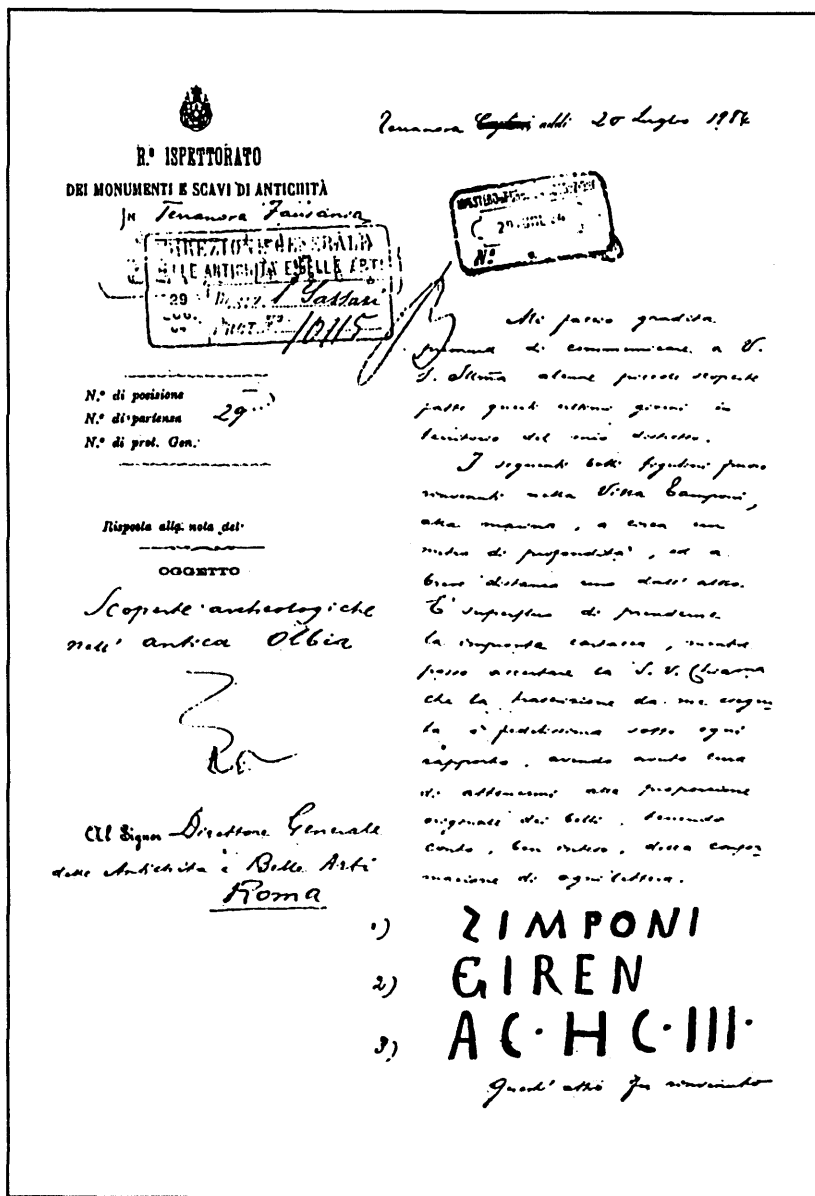 Terranova addì 20 Luglio 1904
R.º ISPETTORATO
DEI MONUMENTI E SCAVI DI ANTICHITÀ
In Terranova Pausania
DIREZIONE GENERALE
DELLE ANTICHITÀ E BELLE ARTI
29 Sassari
10115
Nº
N.º di posizione
N.º di partenza 29
N.º di prot. Gen.
Risposta alla nota del
OGGETTO
Scoperte archeologiche
nell' antica Olbia
Al Signor Direttore Generale
delle Antichità e Belle Arti
Roma
Mi faccio gradita
premura di communicare a V.
S. Illma alcune piccole scoperte
fatte questi ultimi giorni in
territorio del mio distretto.
I seguenti bolli figulini furono
rinvenuti nella Villa Tamponi,
alla marina, a circa un
metro di profondità, ed a
breve distanza uno dall' altro.
È superfluo di prenderne
la impronta cartacea, mentre
posso accertare la S. V.
che la trascrizione da me esegui-
ta è fedelissima sotto ogni
rapporto, avendo avuto cura
di attenermi alla proporzione
originale dei bolli, tenendo
conto, ben inteso, della confor-
mazione di ogni lettera.
1) ZIMPONI
2) GIREN
3) AC·HC·III·
Quest' altro fu rinvenuto